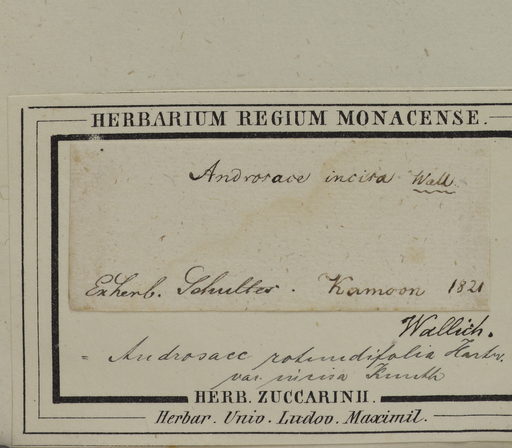 HERBARIUM REGIUM MONACENSE.
Androsace incisa Wall.
Ex herb. Schultes. Kamoon 1821
Wallich.
= Androsace rotundifolia Hardw.
var. incisa Knuth
HERB. ZUCCARINII.
Herbar. Univ. Ludov. Maximil.